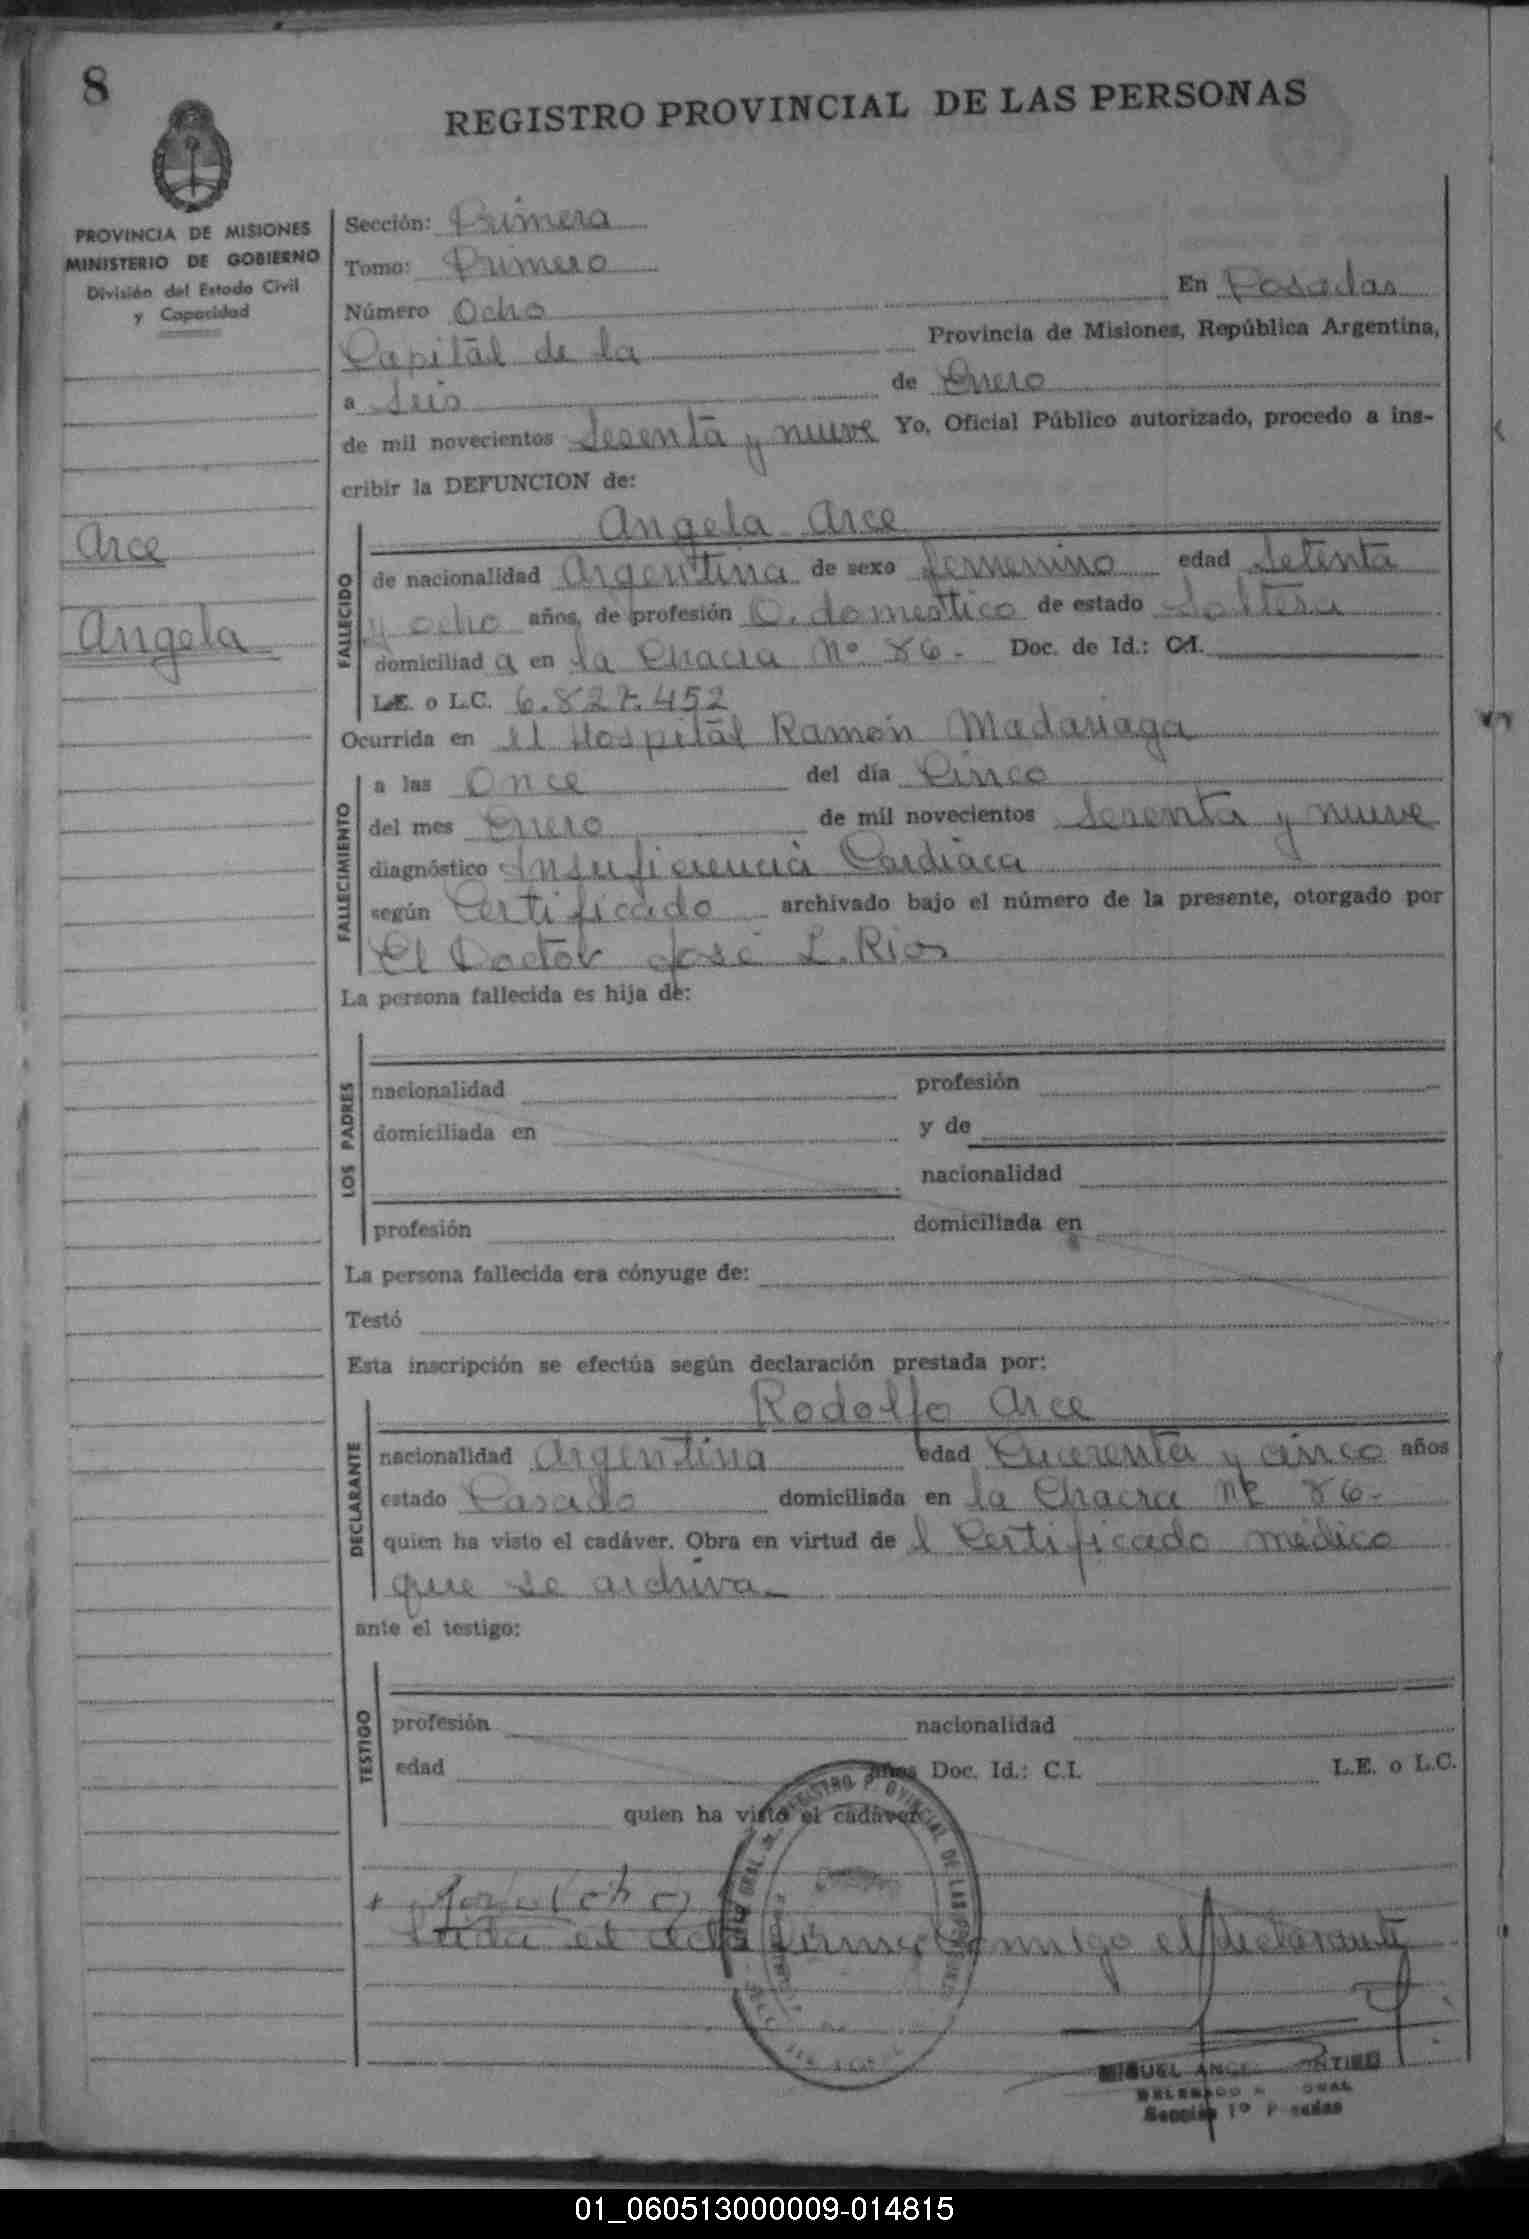 8
REGISTRO PROVINCIAL DE LAS PERSONAS
PROVINCIA DE MISIONES
MINISTERIO DE GOBIERNO
División del Estado Civil
y Capacidad
Arce
Angela
Sección: Primera
Tomo: Primero
Número Ocho En Posadas
Capital de la Provincia de Misiones, República Argentina,
a Seis de Enero
de mil novecientos Sesenta y nueve Yo, Oficial Público autorizado, procedo a ins-
cribir la DEFUNCION de:
Angela Arce
FALLECIDO
de nacionalidad Argentina de sexo femenino edad Setenta
y ocho años, de profesión Q. domestico de estado Soltera
domiciliad a en la Chacra Nº 86.- Doc. de Id.: C.I.
L.E. o L.C. 6.827.452
Ocurrida en el Hospital Ramón Madariaga
FALLECIMIENTO
a las Once del día Cinco
del mes Enero de mil novecientos Sesenta y nueve
diagnóstico Insuficiencia Cardiaca
según Certificado archivado bajo el número de la presente, otorgado por
El Doctor José L. Rios
La persona fallecida es hija de:
LOS PADRES
nacionalidad profesión
domiciliada en y de
nacionalidad
profesión domiciliada en
La persona fallecida era cónyuge de:
Testó
Esta inscripción se efectúa según declaración prestada por:
Rodolfo Arce
DECLARANTE
nacionalidad Argentina edad Cuarenta y cinco años
estado Casado domiciliada en la Chacra Nº 86-
quien ha visto el cadáver. Obra en virtud de l Certificado médico
que se archiva.-
ante el testigo:
TESTIGO
profesión nacionalidad
edad años Doc. Id.: C.I. L.E. o L.C.
quien ha visto el cadáver
REGISTRO PROVINCIAL DE LAS PERSONAS
Leida el acta firma conmigo el declarante
MIGUEL ANGEL
DELEGADO
Sección 1º Posadas
01_060513000009-014815